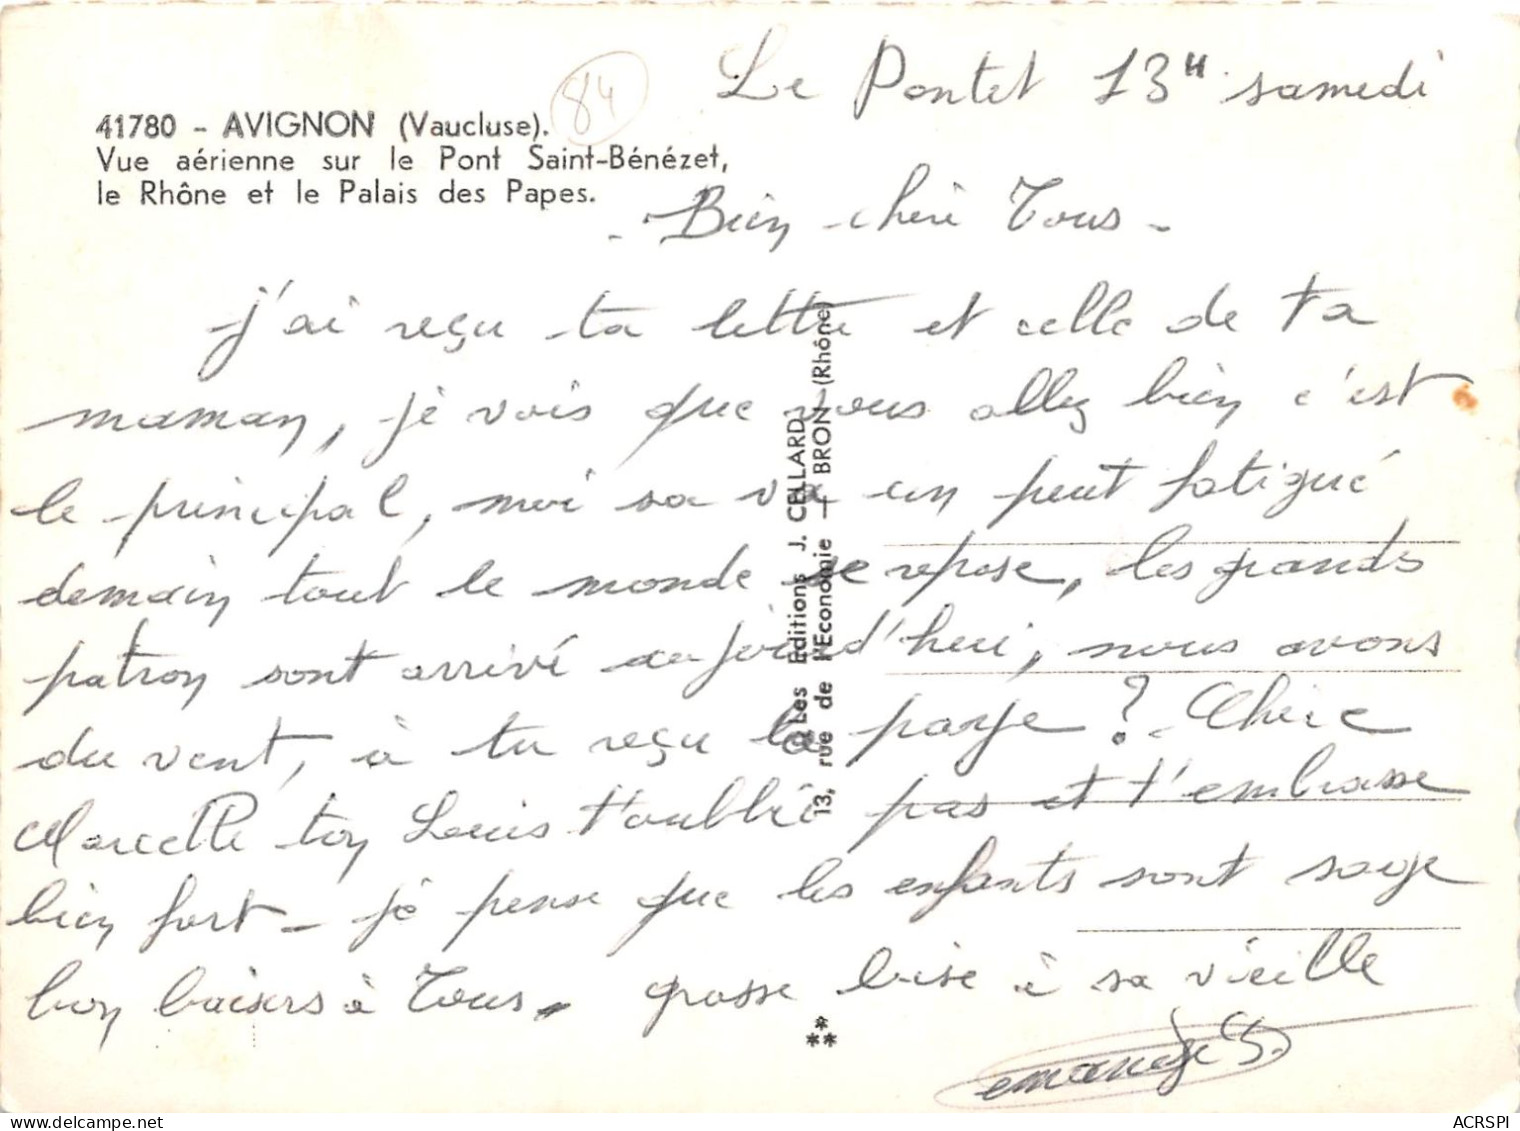 Le Pontet 13H samedi
84
41780 - AVIGNON (Vaucluse).
Vue aérienne sur le Pont Saint-Bénézet,
le Rhône et le Palais des Papes.
- Bien chère Tous -
j'ai reçu ta lettre et celle de ta
maman, je vois que vous allez bien c'est
le principal, moi sa va un peut fatigué
demain tout le monde se repose, les grands
patron sont arrivé aujourd'hui, nous avons
du vent, à tu reçu ta paye ? - Chère
Marcelle ton Louis t'oublie pas et t'embrasse
bien fort - je pense que les enfants sont sage
bon baisers à Tous. grosse bise à sa vieille
Les Editions J. CELLARD
13, rue de l'Economie - BRON (Rhône)
ACRSPI